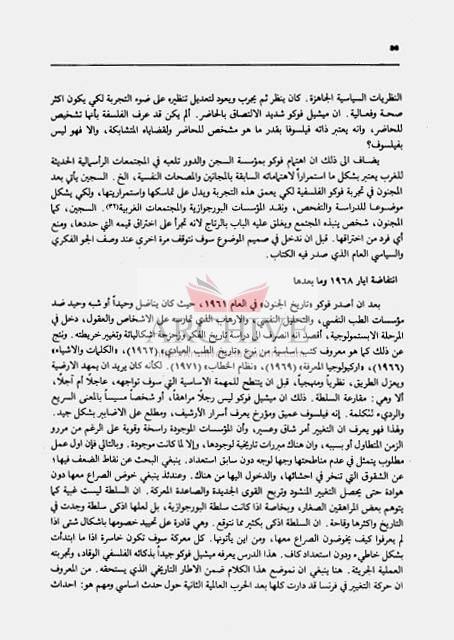 ٥٥
النظريات السياسية الجاهزة . كان ينظر ثم يجرب ويعود لتعديل تنظيره على ضوء التجربة لكي يكون اكثر
صحة وفعالية . ان ميشيل فوكو شديد الالتصاق بالحاضر. ألم يكن قد عرف الفلسفة بأنها تشخيص
للحاضر، وانه يعتبر ذاته فيلسوفاً بقدر ما هو مشخص للحاضر ولقضاياه المتشابكة، والا فهو ليس
بفيلسوف؟
يضاف الى ذلك ان اهتمام فوكو بمؤسسة السجن والدور الذي تلعبه في المجتمعات الرأسمالية الحديثة
للغرب يعتبر بشكل ما استمراراً لاهتماماته السابقة بالمجانين والمصحات النفسية، الخ . السجين يأتي بعد
المجنون في تجربة فوكو الفلسفية لكي يعمق هذه التجربة ويدل على تماسكها واستمراريتها، ولكي يشكل
موضوعاً للدراسة والتفحص، ونقد المؤسسات البورجوازية والمجتمعات الغربية(٣٢). السجين، كما
المجنون، شخص ينبذه المجتمع ويغلق عليه الباب بالرتاج لانه تجرأ على اختراق قيمه التي حددها، ومنع
أي فرد من اختراقها. قبل ان ندخل في صميم الموضوع سوف نتوقف مرة اخرى عند وصف الجو الفكري
والسياسي العام الذي صدر فيه الكتاب.
انتفاضة ايار ١٩٦٨ وما بعدها
بعد ان أصدر فوكو «تاريخ الجنون» في العام ١٩٦١، حيث كان يناضل وحيداً أو شبه وحيد ضد
مؤسسات الطب النفسي، والتحليل النفسي، والارهاب الذي تمارسه على الاشخاص والعقول، دخل في
المرحلة الابستمولوجية، أقصد انه انصرف الى دراسة تاريخ الفكر وزحزحة اشكالياته وتغيير خريطته. ونتج
عن ذلك كما هو معروف كتب اساسية من نوع «تاريخ الطب العيادي» (١٩٦٢)، «الكلمات والاشياء»
(١٩٦٦)، «اركيولوجيا المعرفة» (١٩٦٩)، «نظام الخطاب» (١٩٧١). لكأنه كان يريد ان يمهد الارضية
ويعزل الطريق، نظرياً ومنهجياً، قبل ان ينتطح للمهمة الاساسية التي سوف تواجهه، عاجلاً أم آجلاً،
ألا وهي: مقارعة السلطة. ذلك ان ميشيل فوكو ليس رجلاً مراهقاً، أو شخصاً مسيساً بالمعنى السريع
والرديء للكلمة. إنه فيلسوف عميق ومؤرخ يعرف أسرار الأرشيف، ومطلع على الاضابير بشكل جيد.
ولهذا فهو يعرف ان التغيير أمر شاق وعسير، وأن المؤسسات الموجودة راسخة وقوية على الرغم من مرور
الزمن المتطاول أو بسببه، وان هناك مبررات تاريخية لوجودها، وإلا لما كانت موجودة. وبالتالي فإن اول عمل
مطلوب يتمثل في عدم مناطحتها وجهاً لوجه دون سابق استعداد. ينبغي البحث عن نقاط الضعف فيها؛
عن الشقوق التي تنخر في احشائها، والدخول اليها من هناك. وعندئذ ينبغي خوض الصراع معها دون
هوادة حتى يحصل التغيير المنشود وتربح القوى الجديدة والصاعدة المعركة. ان السلطة ليست غبية كما
يتوهم بعض المراهقين الصغار، وبخاصة اذا كانت سلطة البورجوازية، بل لعلها اذكى سلطة وجدت في
التاريخ واكثرها وقاحة. ان السلطة اذكى بكثير مما نتوقع. وهي قادرة على تحييد خصومها باشكال شتى اذا
لم يعرفوا كيف يخوضون الصراع معها، ومن اين يأتونها. كل معركة سوف تكون خاسرة اذا ما ابتدأت
بشكل خاطىء ودون استعداد كاف. هذا الدرس يعرفه ميشيل فوكو جيداً بذكائه الفلسفي الوقاد، وتجربته
العملية الجريئة. هنا ينبغي ان نموضع هذا الكلام ضمن الاطار التاريخي الذي يستحقه. من المعروف
ان حركة التغيير في فرنسا قد دارت كلها بعد الحرب العالمية الثانية حول حدث اساسي ومهم هو: احداث
ARCHIVE